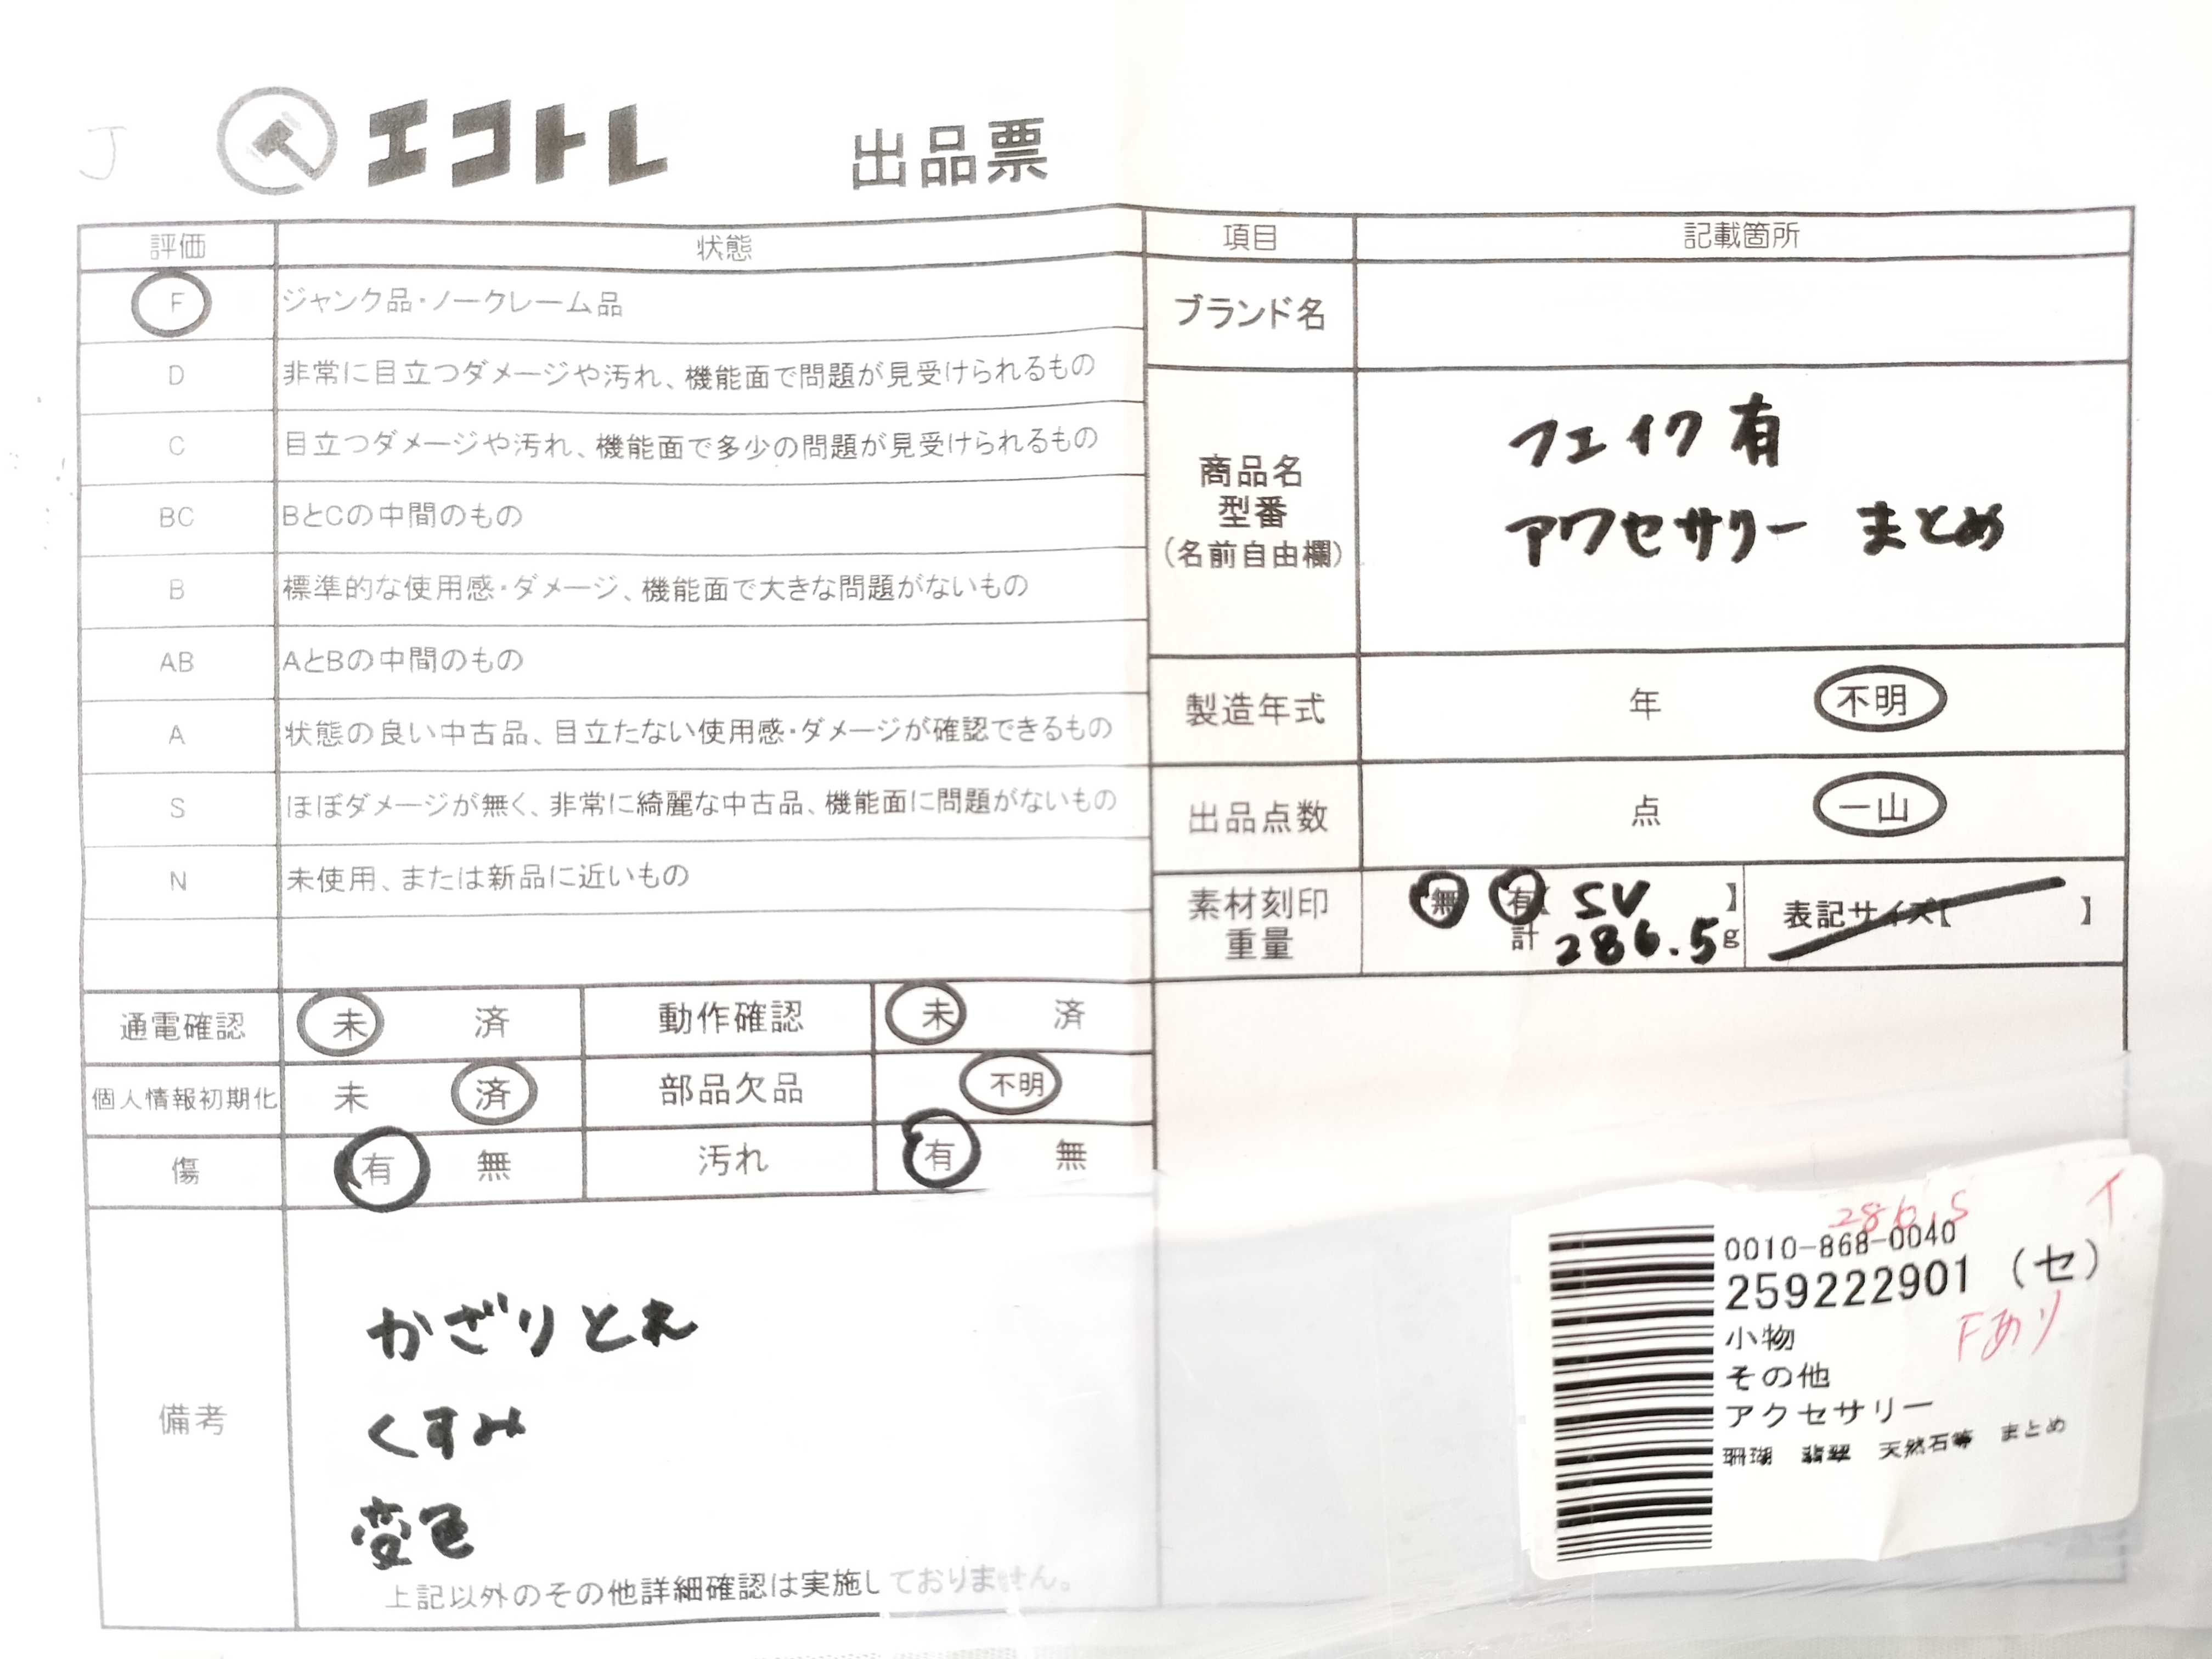 J
エコトレ 出品票
評価 状態
F ジャンク品・ノークレーム品
D 非常に目立つダメージや汚れ、機能面で問題が見受けられるもの
C 目立つダメージや汚れ、機能面で多少の問題が見受けられるもの
BC BとCの中間のもの
B 標準的な使用感・ダメージ、機能面で大きな問題がないもの
AB AとBの中間のもの
A 状態の良い中古品、目立たない使用感・ダメージが確認できるもの
S ほぼダメージが無く、非常に綺麗な中古品、機能面に問題がないもの
N 未使用、または新品に近いもの
通電確認 未 済 動作確認 未 済
個人情報初期化 未 済 部品欠品 不明
傷 有 無 汚れ 有 無
備考
かざりとれ
くすみ
変色
上記以外のその他詳細確認は実施しておりません。
項目 記載箇所
ブランド名
商品名
型番
(名前自由欄)
フェイク有
アクセサリー まとめ
製造年式 年 不明
出品点数 点 一山
素材刻印
重量
無 有【 SV 】
計 286.5g
表記サイズ【 】
286.5 イ
0010-868-0040
259222901 (セ)
Fあり
小物
その他
アクセサリー
珊瑚 翡翠 天然石等 まとめ